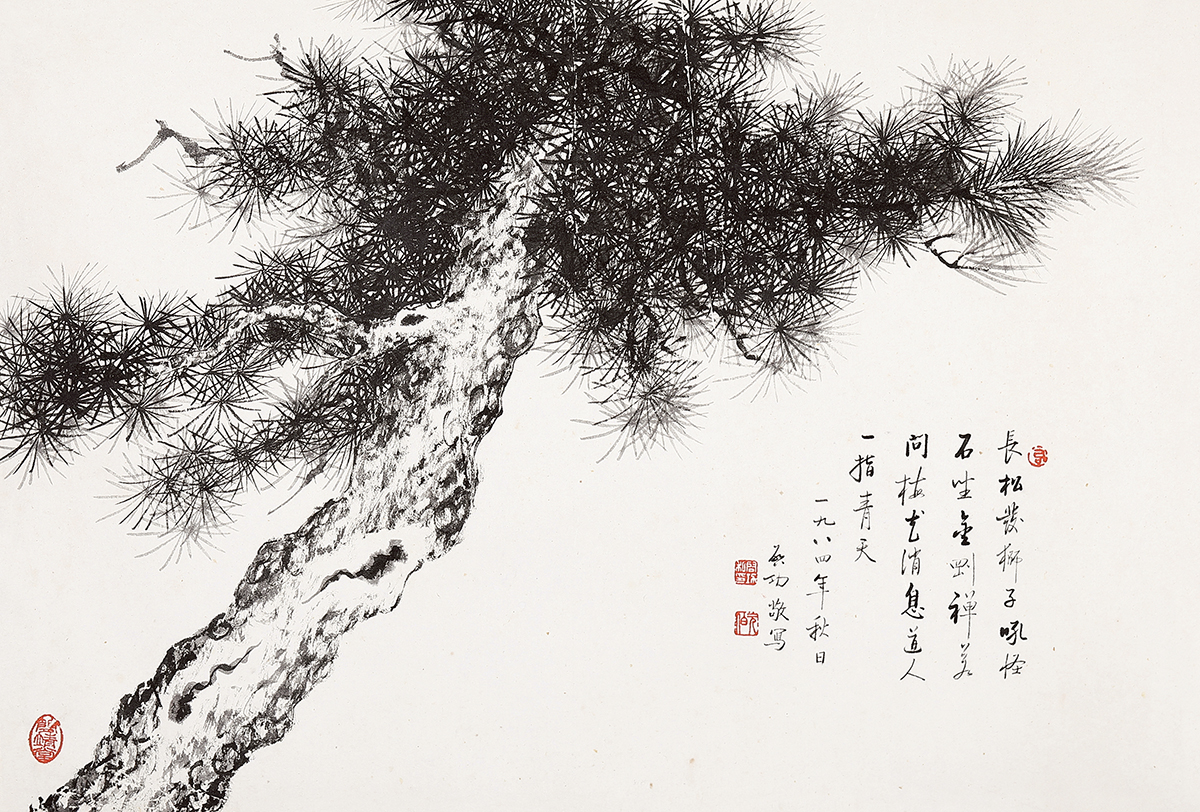 長松發獅子吼怪
石坐金剛禪若
問梅花消息道人
一指青天
一九八四年秋日
启功敬寫